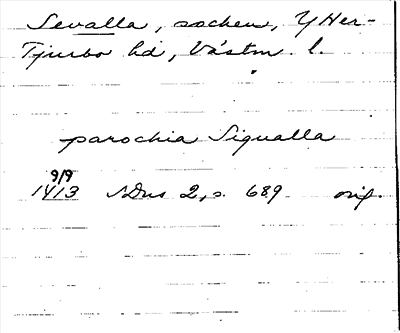 Sevalla, socken, Y Her-
Tjurbo hd, Västm. l.
parochia Sigualla
9/9
1413 SDns 2, s. 689 orig.